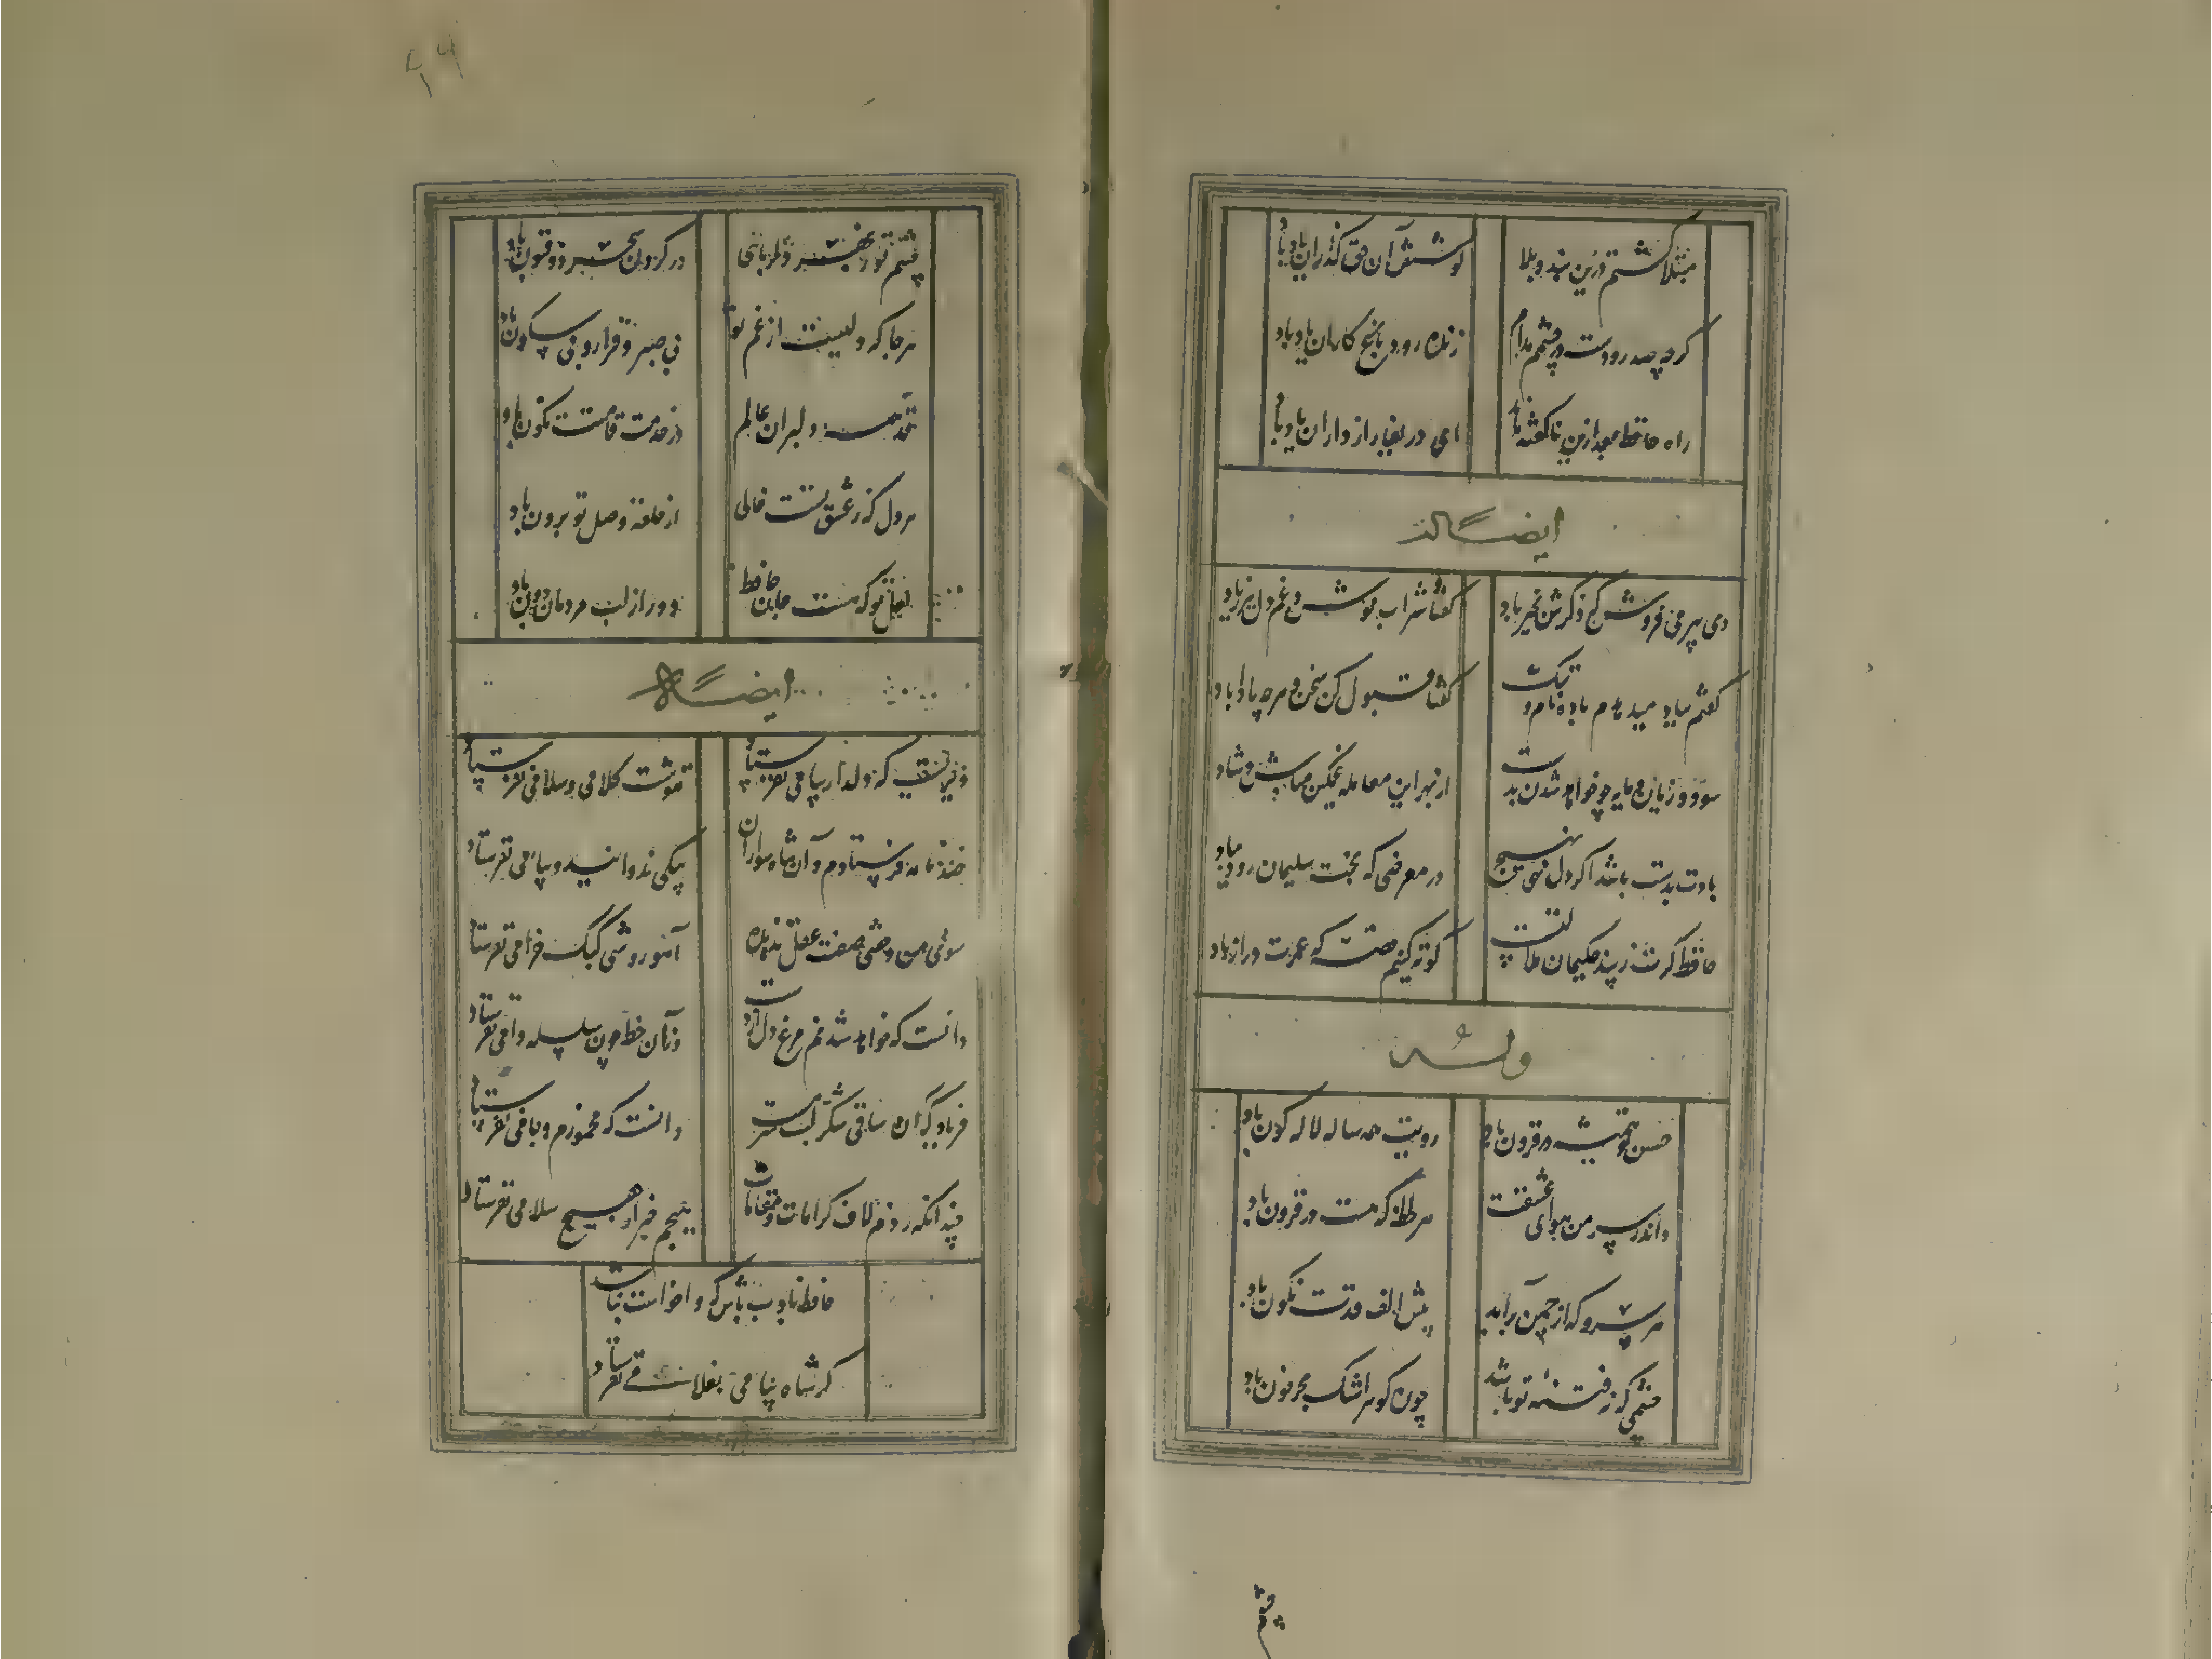 مبتلا گشتم درین بند و بلا
کوشش آن حق گذاران یاد باد
گرچه صد رودست در چشمم مدام
زنده رود و باغ کاران یاد باد
راز حافظ بعد ازین ناگفته ماند
ای دریغا رازداران یاد باد
ایضاً له
دی پیر می فروش که ذکرش بخیر باد
گفتا شراب نوش و غم دل ببر ز یاد
گفتم بباد میدهدم باده نام و ننگ
گفتا قبول کن سخن و هرچه باد باد
سود و زیان و مایه چو خواهد شدن ز دست
از بهر این معامله غمگین مباش و شاد
بادت بدست باشد اگر دل نهی بهیچ
در معرضی که تخت سلیمان رود بباد
حافظ گرت ز پند حکیمان ملالتست
کوته کنیم قصه که عمرت دراز باد
وله
حسن تو همیشه در فزون باد
رویت همه ساله لاله گون باد
واندر سر من هوای عشقت
هر لحظه که هست در فزون باد
هر سرو که از چمن برآید
پیش الف قدت نگون باد
چشمی که نه فتنه تو باشد
چون گوهر اشک بحر خون باد
چشم
۲۶
چشم تو ز بهر دلربائی
در کردن سحر ذوفنون باد
هرجا که دلیست از غم تو
بی صبر و قرار و بی سکون باد
قد همه دلبران عالم
در خدمت قامتت نگون باد
هر دل که ز عشق تست خالی
از حلقه وصل تو برون باد
لعل تو که هست جان حافظ
دور از لب مردمان دون باد
ایضاً له
دیریست که دلدار پیامی نفرستاد
ننوشت کلامی و سلامی نفرستاد
صد نامه فرستادم و آن شاه سواران
پیکی ندوانید و پیامی نفرستاد
سوی من وحشی صفت عقل رمیده
آهو روشی کبک خرامی نفرستاد
دانست که خواهد شدنم مرغ دل از دست
وزان خط چون سلسله دامی نفرستاد
فریاد که آن ساقی شکر لب سرمست
دانست که مخمورم و جامی نفرستاد
چندانکه زدم لاف کرامات و مقامات
هیچم خبر از هیچ سلامی نفرستاد
حافظ بادب باش که واخواست نباشد
گر شاه پیامی بغلامی نفرستاد